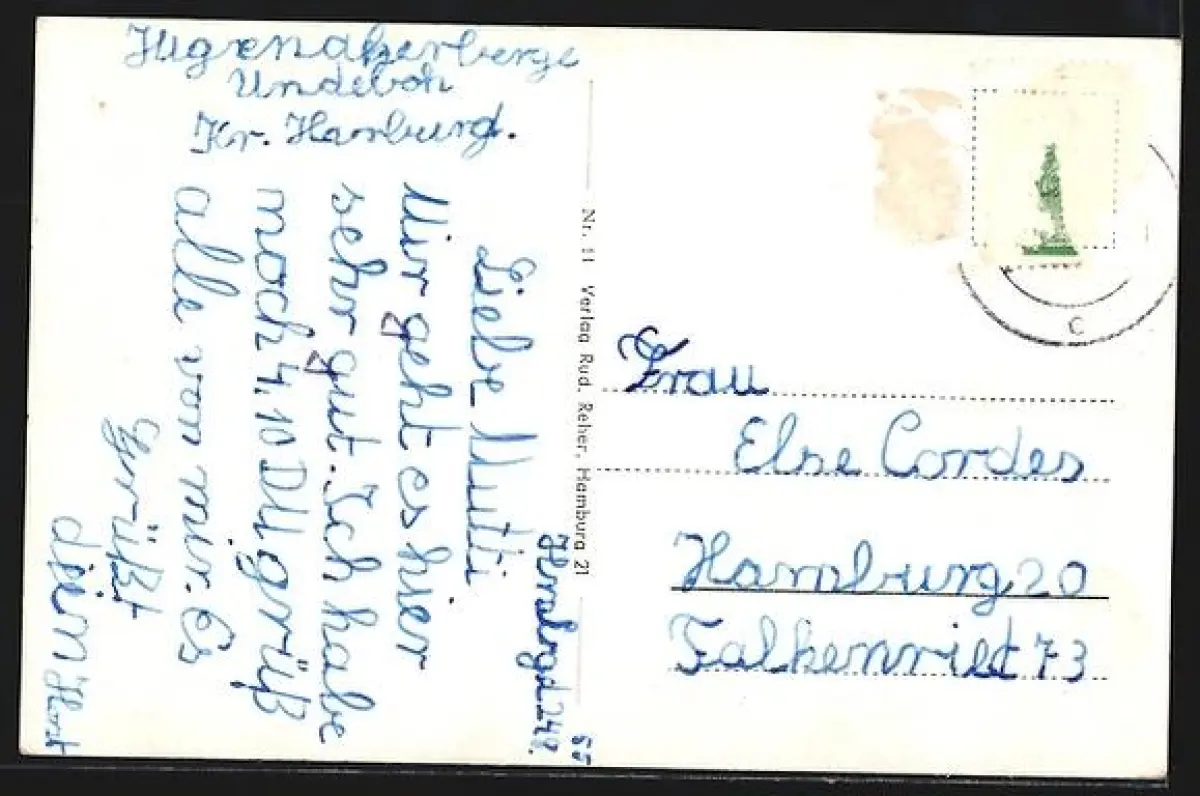 Jugendherberge
Undeloh
Kr. Harburg.
Liebe Mutti
Mir geht es hier
sehr gut. Ich habe
noch 4,10 DM grüß
alle von mir. Es
Grüßt
dein Horst
Nr. 11 Verlag Rud. Reher, Hamburg 21
55
Frau
Else Cordes
Hamburg 20
Falkenried 73
C